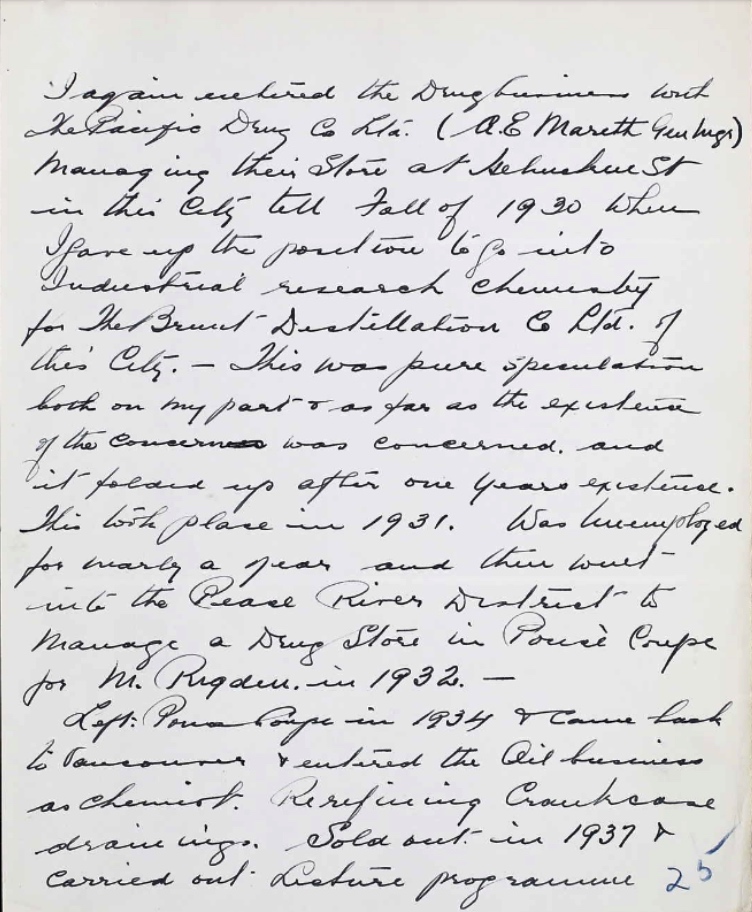 I again entered the Drug business with
The Pacific Drug Co Ltd. (A.E Mareth Gen Mgr)
Managing their Store at St
in this City till Fall of 1930 When
I gave up the position to go into
Industrial research Chemistry
for The Brunt Distillation Co Ltd. of
this City. — This was pure speculation
both on my part & as far as the existence
of the concern was concerned. and
it folded up after one years existence.
This took place in 1931. Was Unemployed
for nearly a year and then went
into the Peace River District to
Manage a Drug Store in Pouse Coupe
for M. Rigden. in 1932. —
Left Pouse Coupe in 1934 & Came back
to Vancouver & entered the Oil business
as chemist. Rerefining Crankcase
drainings. Sold out in 1937 &
Carried out Lecture programme 25